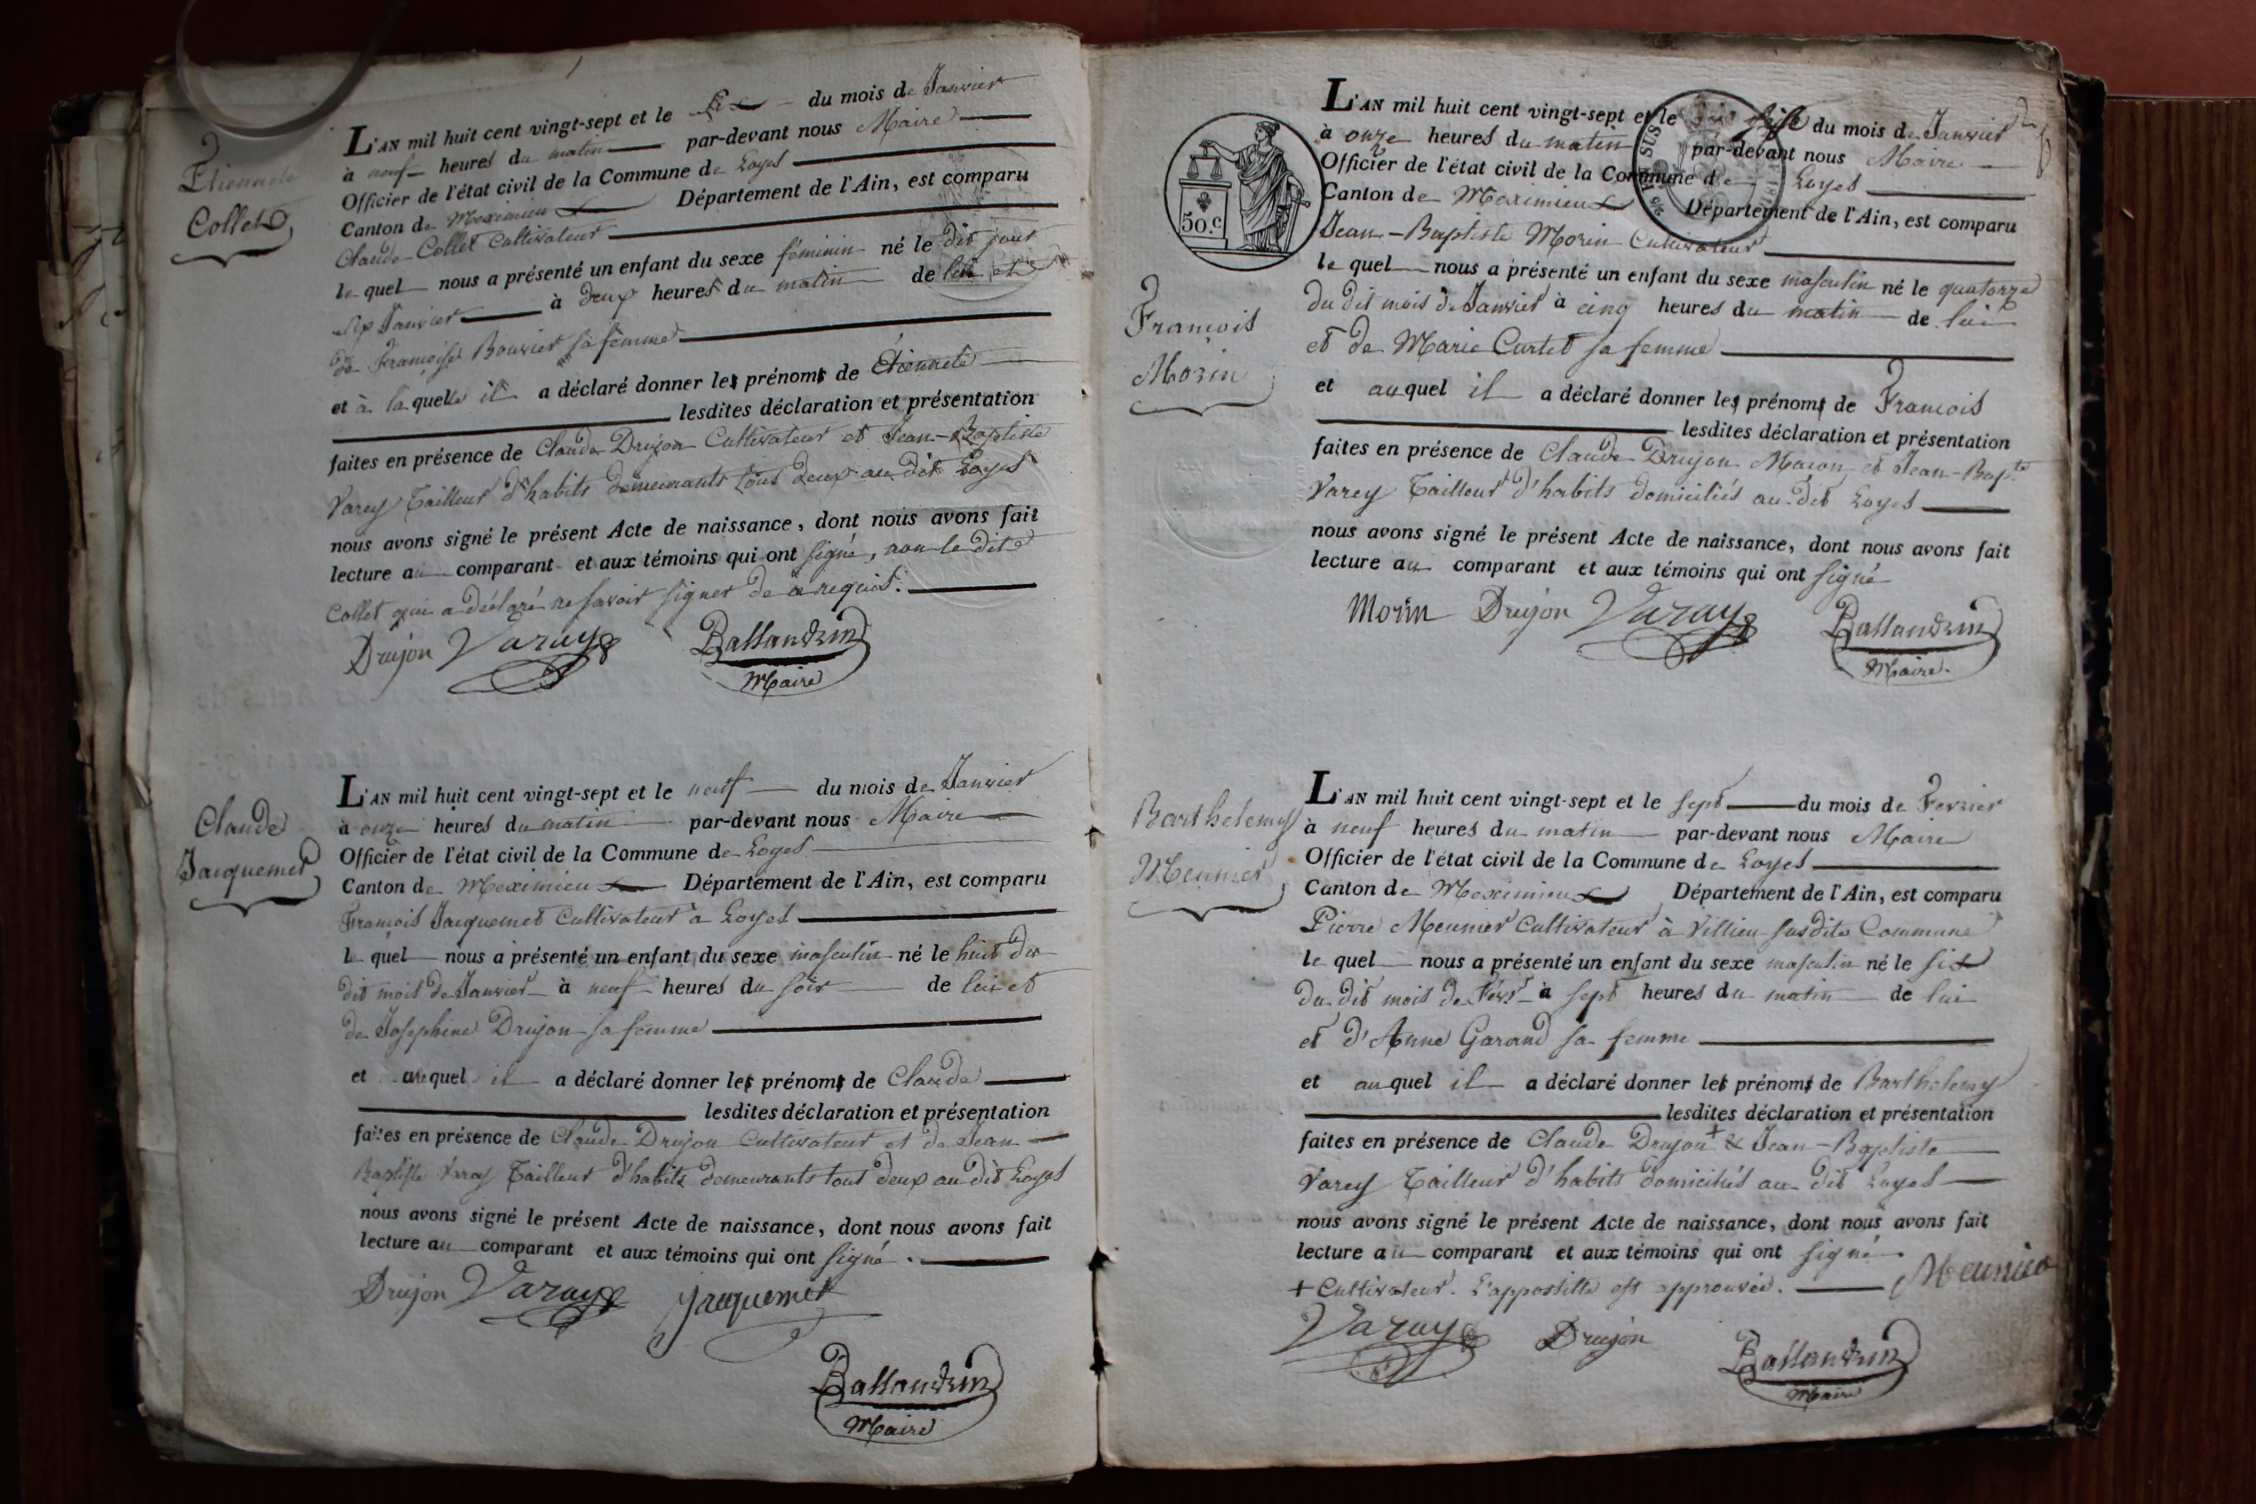 Étiennete
Collet
L'AN mil huit cent vingt-sept et le six du mois de Janvier
à neuf heures du matin par-devant nous Maire
Officier de l'état civil de la Commune de Loyes
Canton de Meximieux Département de l'Ain, est comparu
Claude Collet Cultivateur
lequel nous a présenté un enfant du sexe féminin né le dit jour
six Janvier à deux heures du matin de lui et
de Françoise Bouvier sa femme
et à laquelle il a déclaré donner les prénoms de Étiennete
lesdites déclaration et présentation
faites en présence de Claude Drujon Cultivateur et Jean-Baptiste
Varey Tailleur d'habits demeurants tous deux au dit Loyes
nous avons signé le présent Acte de naissance, dont nous avons fait
lecture au comparant et aux témoins qui ont signé, non le dit
Collet qui a déclaré ne savoir signer de ce requis.
Drujon Varay Ballandrin
Maire
Claude
Jacquemet
L'AN mil huit cent vingt-sept et le neuf du mois de Janvier
à onze heures du matin par-devant nous Maire
Officier de l'état civil de la Commune de Loyes
Canton de Meximieux Département de l'Ain, est comparu
François Jacquemet Cultivateur à Loyes
lequel nous a présenté un enfant du sexe masculin né le huit du
dit mois de Janvier à neuf heures du soir de lui et
de Josephine Drujon sa femme
et auquel il a déclaré donner les prénoms de Claude
lesdites déclaration et présentation
faites en présence de Claude Drujon Cultivateur et de Jean
Baptiste Varey Tailleur d'habits demeurants tous deux au dit Loyes
nous avons signé le présent Acte de naissance, dont nous avons fait
lecture au comparant et aux témoins qui ont signé.
Drujon Varay Jacquemet
Ballandrin
Maire
50.c
SUS
François
Morin
L'AN mil huit cent vingt-sept et le du mois de Janvier
à onze heures du matin par-devant nous Maire
Officier de l'état civil de la Commune de Loyes
Canton de Meximieux Département de l'Ain, est comparu
Jean-Baptiste Morin Cultivateur
lequel nous a présenté un enfant du sexe masculin né le quatorze
du dit mois de Janvier à cinq heures du matin de lui
et de Marie Curtet sa femme
et auquel il a déclaré donner les prénoms de François
lesdites déclaration et présentation
faites en présence de Claude Drujon Maçon et Jean-Bapte
Varey Tailleur d'habits domiciliés au dit Loyes
nous avons signé le présent Acte de naissance, dont nous avons fait
lecture au comparant et aux témoins qui ont signé
Morin Drujon Varay Ballandrin
Maire.
Barthelemy
Meunier
L'AN mil huit cent vingt-sept et le sept du mois de Fevrier
à neuf heures du matin par-devant nous Maire
Officier de l'état civil de la Commune de Loyes
Canton de Meximieux Département de l'Ain, est comparu
Pierre Meunier Cultivateur à Villieu susdite Commune
lequel nous a présenté un enfant du sexe masculin né le six
du dit mois de Févr à sept heures du matin de lui
et d'Anne Garand sa femme
et auquel il a déclaré donner les prénoms de Barthelemy
lesdites déclaration et présentation
faites en présence de Claude Drujon + & Jean-Baptiste
Varey Tailleur d'habits domiciliés au dit Loyes
nous avons signé le présent Acte de naissance, dont nous avons fait
lecture au comparant et aux témoins qui ont signé
+ Cultivateur. L'appostille est approuvée. Meunier
Varay Drujon Ballandrin
Maire